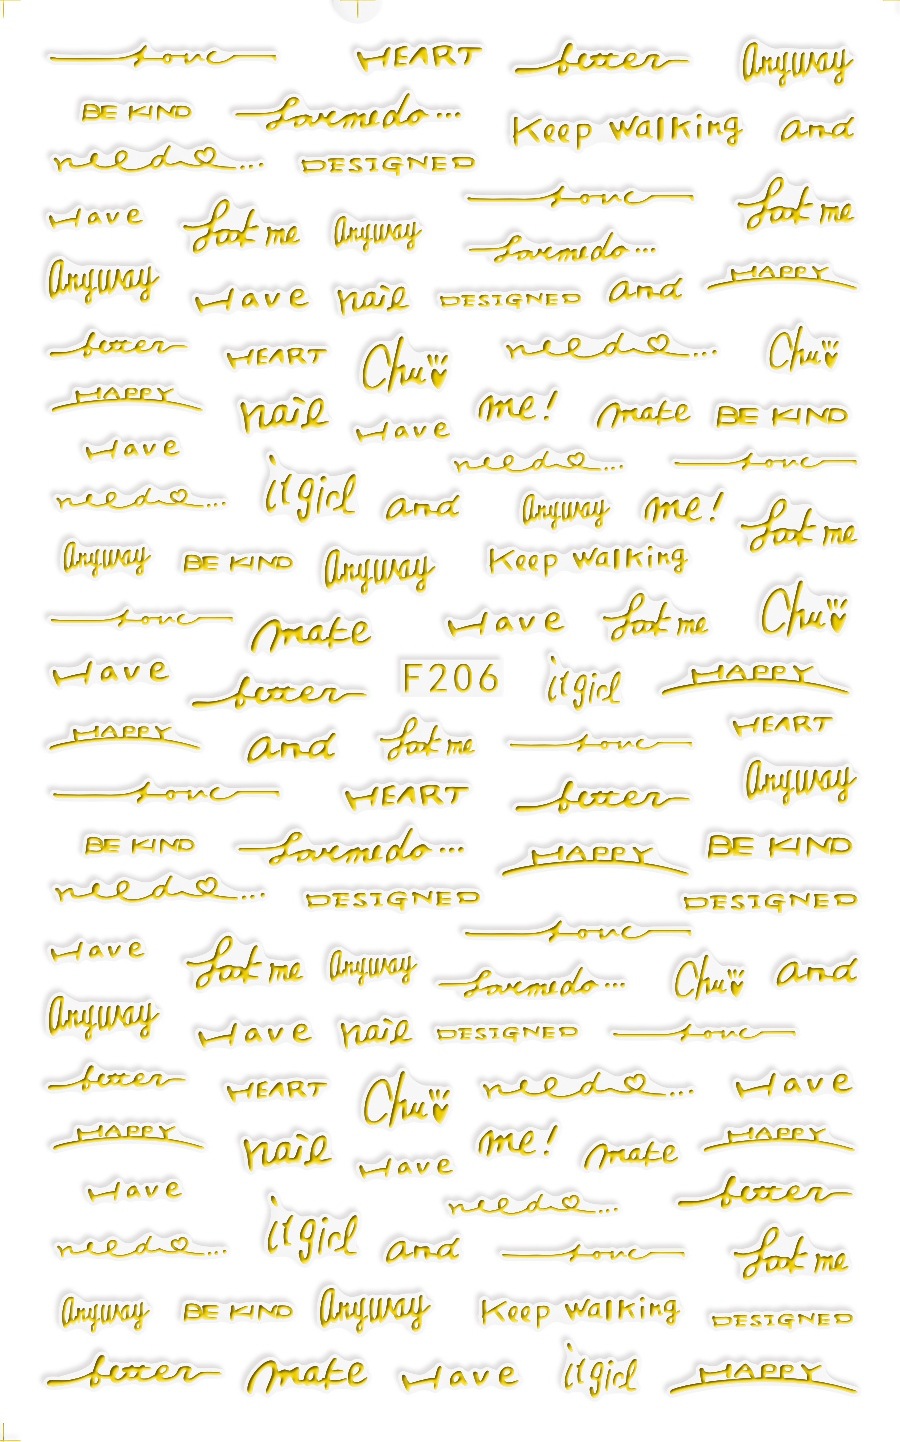 Love HEART better Anyway
BE KIND Love me do... Keep walking and
need... DESIGNED
Love Look me
Have Look me Anyway
Love me do...
Anyway Have nail DESIGNED and HAPPY
better HEART Chu need... Chu
HAPPY nail Have me! make BE KIND
Have need... Love
need... it girl and Anyway me! Look me
Anyway BE KIND Anyway Keep walking
Love make Have Look me Chu
Have better F206 it girl HAPPY
HAPPY and Look me Love HEART
Love HEART better Anyway
BE KIND Love me do... HAPPY BE KIND
need... DESIGNED DESIGNED
Love
Have Look me Anyway Love me do... Chu and
Anyway Have nail DESIGNED Love
better HEART Chu need... Have
HAPPY nail Have me! make HAPPY
Have need... better
need... it girl and Love Look me
Anyway BE KIND Anyway Keep walking DESIGNED
better make Have it girl HAPPY